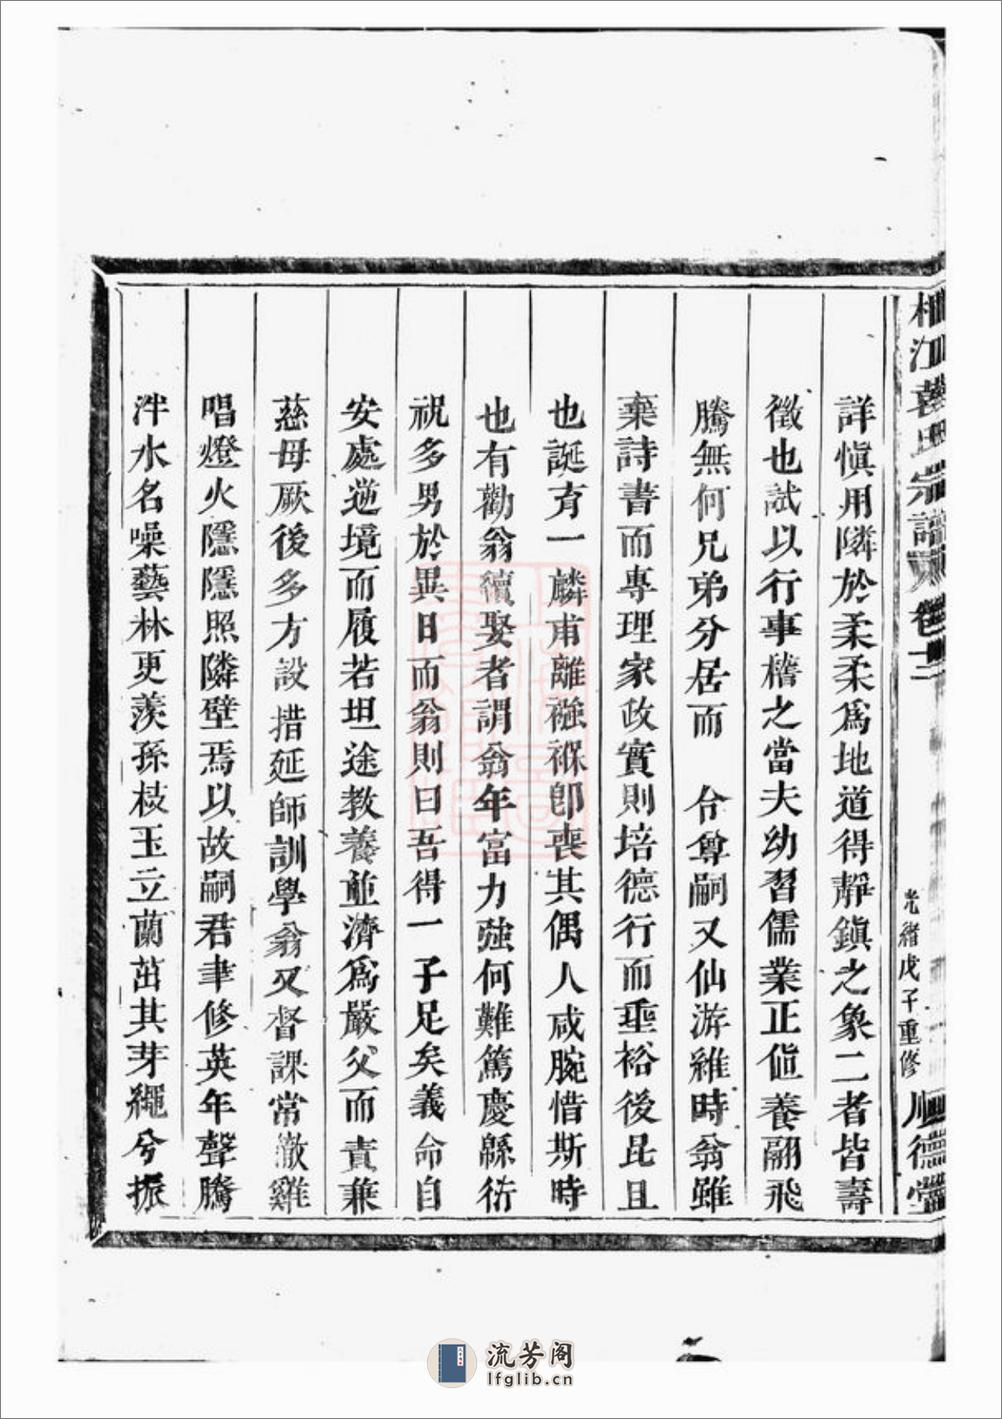 詳慎用隣於柔柔爲地道得靜鎮之象二者皆壽
徵也試以行事稽之當夫幼習儒業正値養翮飛
騰無何兄弟分居而 令尊嗣又仙游維時翁雖
棄詩書而專理家政實則培德行而垂裕後昆且
也誕育一麟甫離襁褓卽喪其偶人咸腕惜斯時
也有勸翁續娶者謂翁年富力強何難篤慶緜衍
祝多男於異日而翁則曰吾得一子足矣義命自
安處逆境而履若坦途教養並濟爲嚴父而責兼
慈母厥後多方設措延師訓學翁又督課常澈雞
唱燈火隱隱照隣壁焉以故嗣君聿修英年聲騰
泮水名噪藝林更羨孫枝玉立蘭茁其芽繩兮振
江 氏宗譜 卷十二
光緒戊子重修 順德堂
流芳阁
lfglib.cn